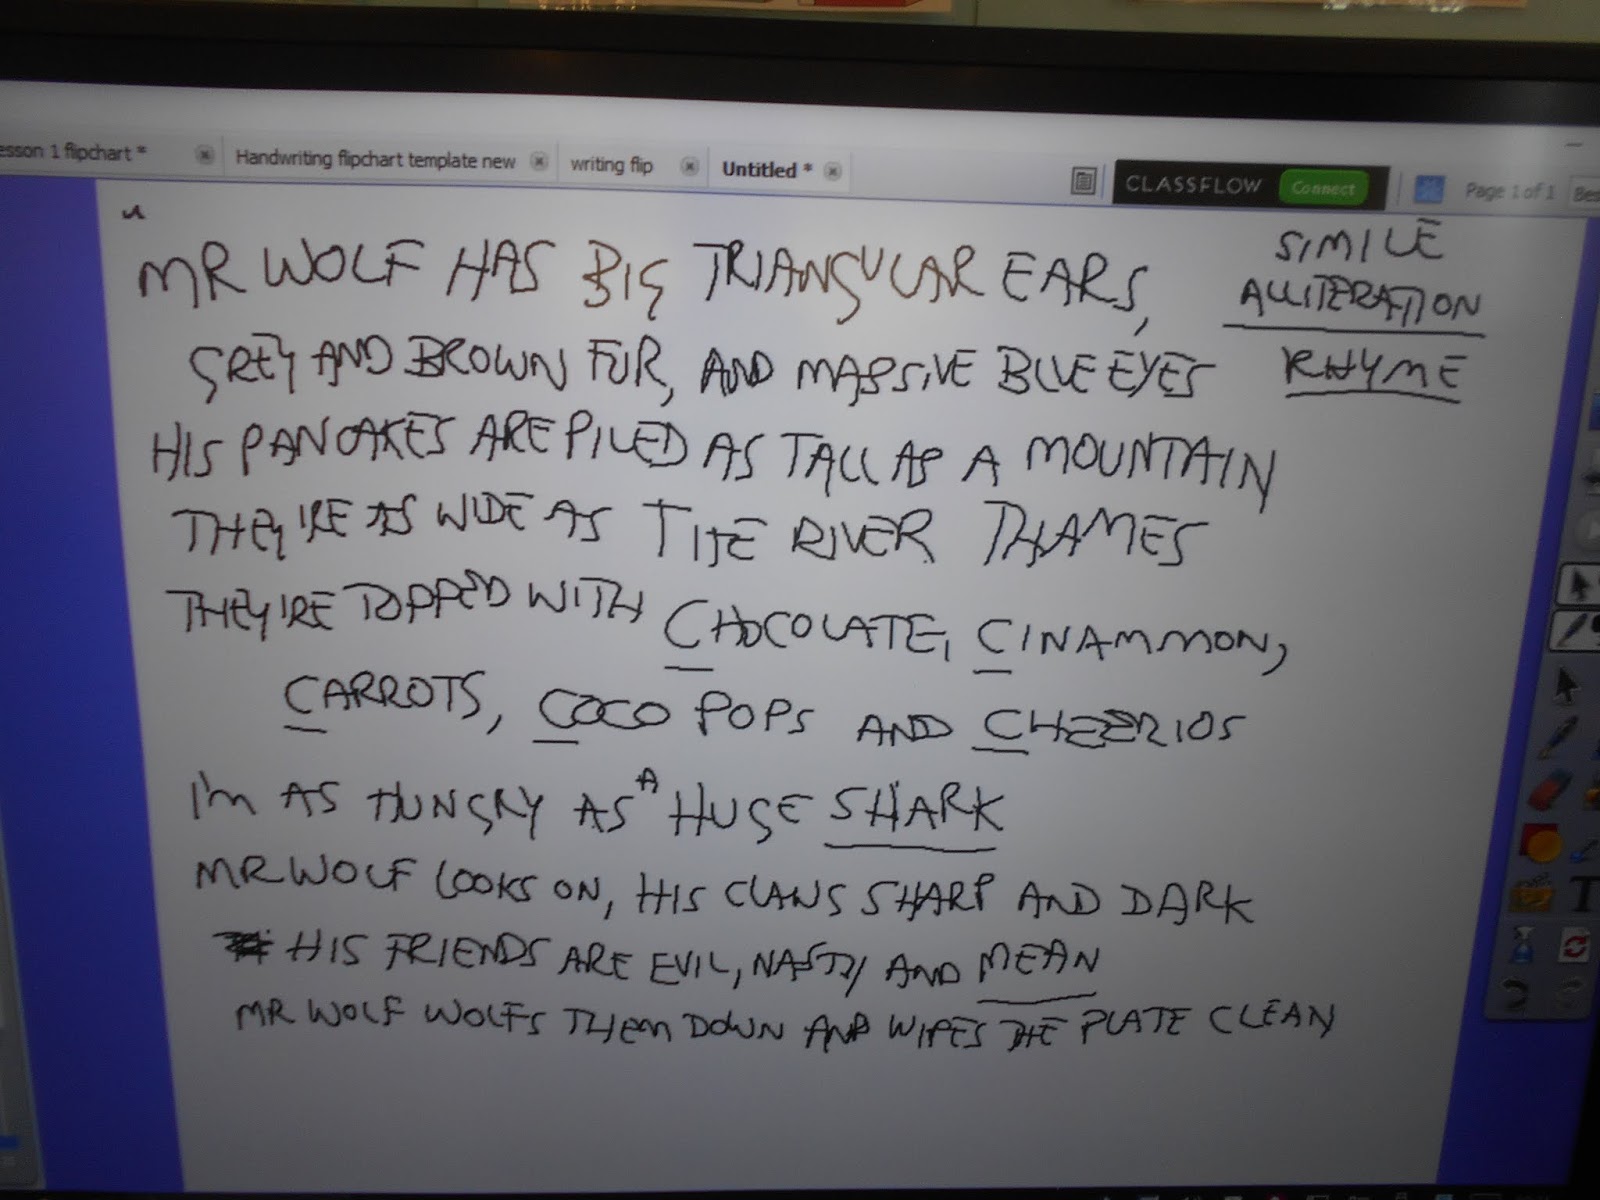 esson 1 flipchart *
Handwriting flipchart template new
writing flip
Untitled *
CLASSFLOW
Connect
Page 1 of 1
Bes
MR WOLF HAS BIG TRIANGULAR EARS,
SIMILE
ALLITERATION
RHYME
GREY AND BROWN FUR, AND MASSIVE BLUE EYES
HIS PANCAKES ARE PILED AS TALL AS A MOUNTAIN
THEY'RE AS WIDE AS THE RIVER THAMES
THEY'RE TOPPED WITH CHOCOLATE, CINAMMON,
CARROTS, COCO POPS AND CHEERIOS
I'm AS HUNGRY AS A HUGE SHARK
MR WOLF LOOKS ON, HIS CLAWS SHARP AND DARK
HIS FRIENDS ARE EVIL, NASTY AND MEAN
MR WOLF WOLFS THEM DOWN AND WIPES THE PLATE CLEAN